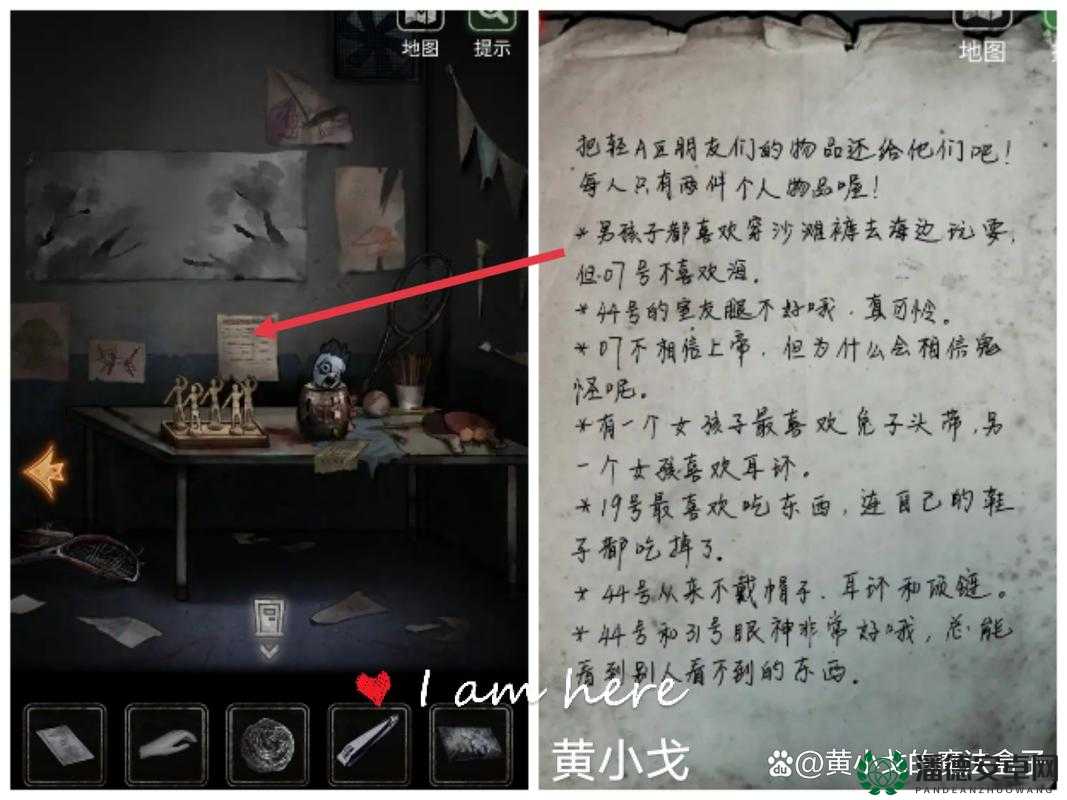 地图
提示
地图
把轻A豆朋友们的物品还给他们吧！
每人只有两件个人物品喔！
*男孩子都喜欢穿沙滩裤去海边玩耍，
但07号不喜欢海。
*44号的室友腿不好哦，真可怜。
*07不相信上帝，但为什么会相信鬼
怪呢。
*有一个女孩子最喜欢兔子头带，另
一个女孩喜欢耳环。
*19号最喜欢吃东西，连自己的鞋
子都吃掉了。
*44号从来不戴帽子、耳环和项链。
*44号和31号眼神非常好哦，总能
看到别人看不到的东西。
I am here
黄小戈
du
@黄小戈的魔法盒子
潘德安卓网
PANDEANZHUOWANG